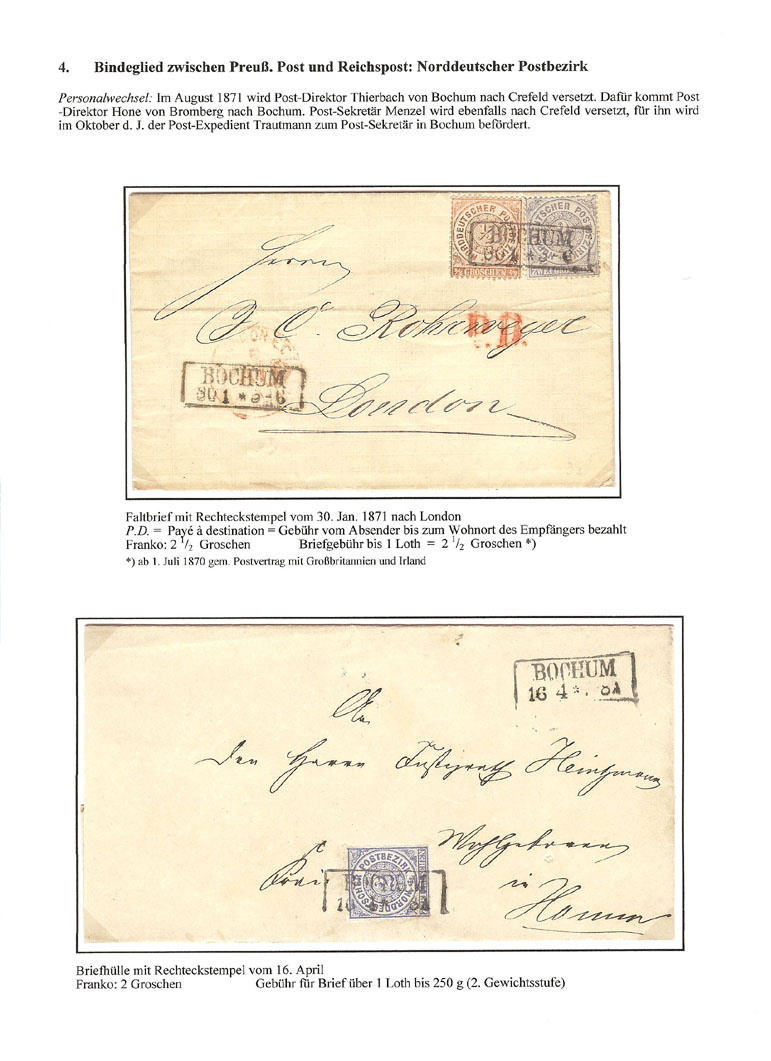 4. Bindeglied zwischen Preuß. Post und Reichspost: Norddeutscher Postbezirk
Personalwechsel: Im August 1871 wird Post-Direktor Thierbach von Bochum nach Crefeld versetzt. Dafür kommt Post
-Direktor Hone von Bromberg nach Bochum. Post-Sekretär Menzel wird ebenfalls nach Crefeld versetzt, für ihn wird
im Oktober d. J. der Post-Expedient Trautmann zum Post-Sekretär in Bochum befördert.
NORDDEUTSCHER POSTBEZIRK
GROSCHEN
BOCHUM
30 1 * 5-6
Herrn
J C. Rohrweger
P.D.
BOCHUM
30 1 * 5-6
London
Faltbrief mit Rechteckstempel vom 30. Jan. 1871 nach London
P.D. = Payé à destination = Gebühr vom Absender bis zum Wohnort des Empfängers bezahlt
Franko: 2 1/2 Groschen Briefgebühr bis 1 Loth = 2 1/2 Groschen *)
*) ab 1. Juli 1870 gem. Postvertrag mit Großbritannien und Irland
BOCHUM
16 4 *
An
den Herrn Justizrath Heintzmann
Wohlgeboren
Frei
in
Hamm
NORDDEUTSCHER POSTBEZIRK
BOCHUM
Briefhülle mit Rechteckstempel vom 16. April
Franko: 2 Groschen Gebühr für Brief über 1 Loth bis 250 g (2. Gewichtsstufe)